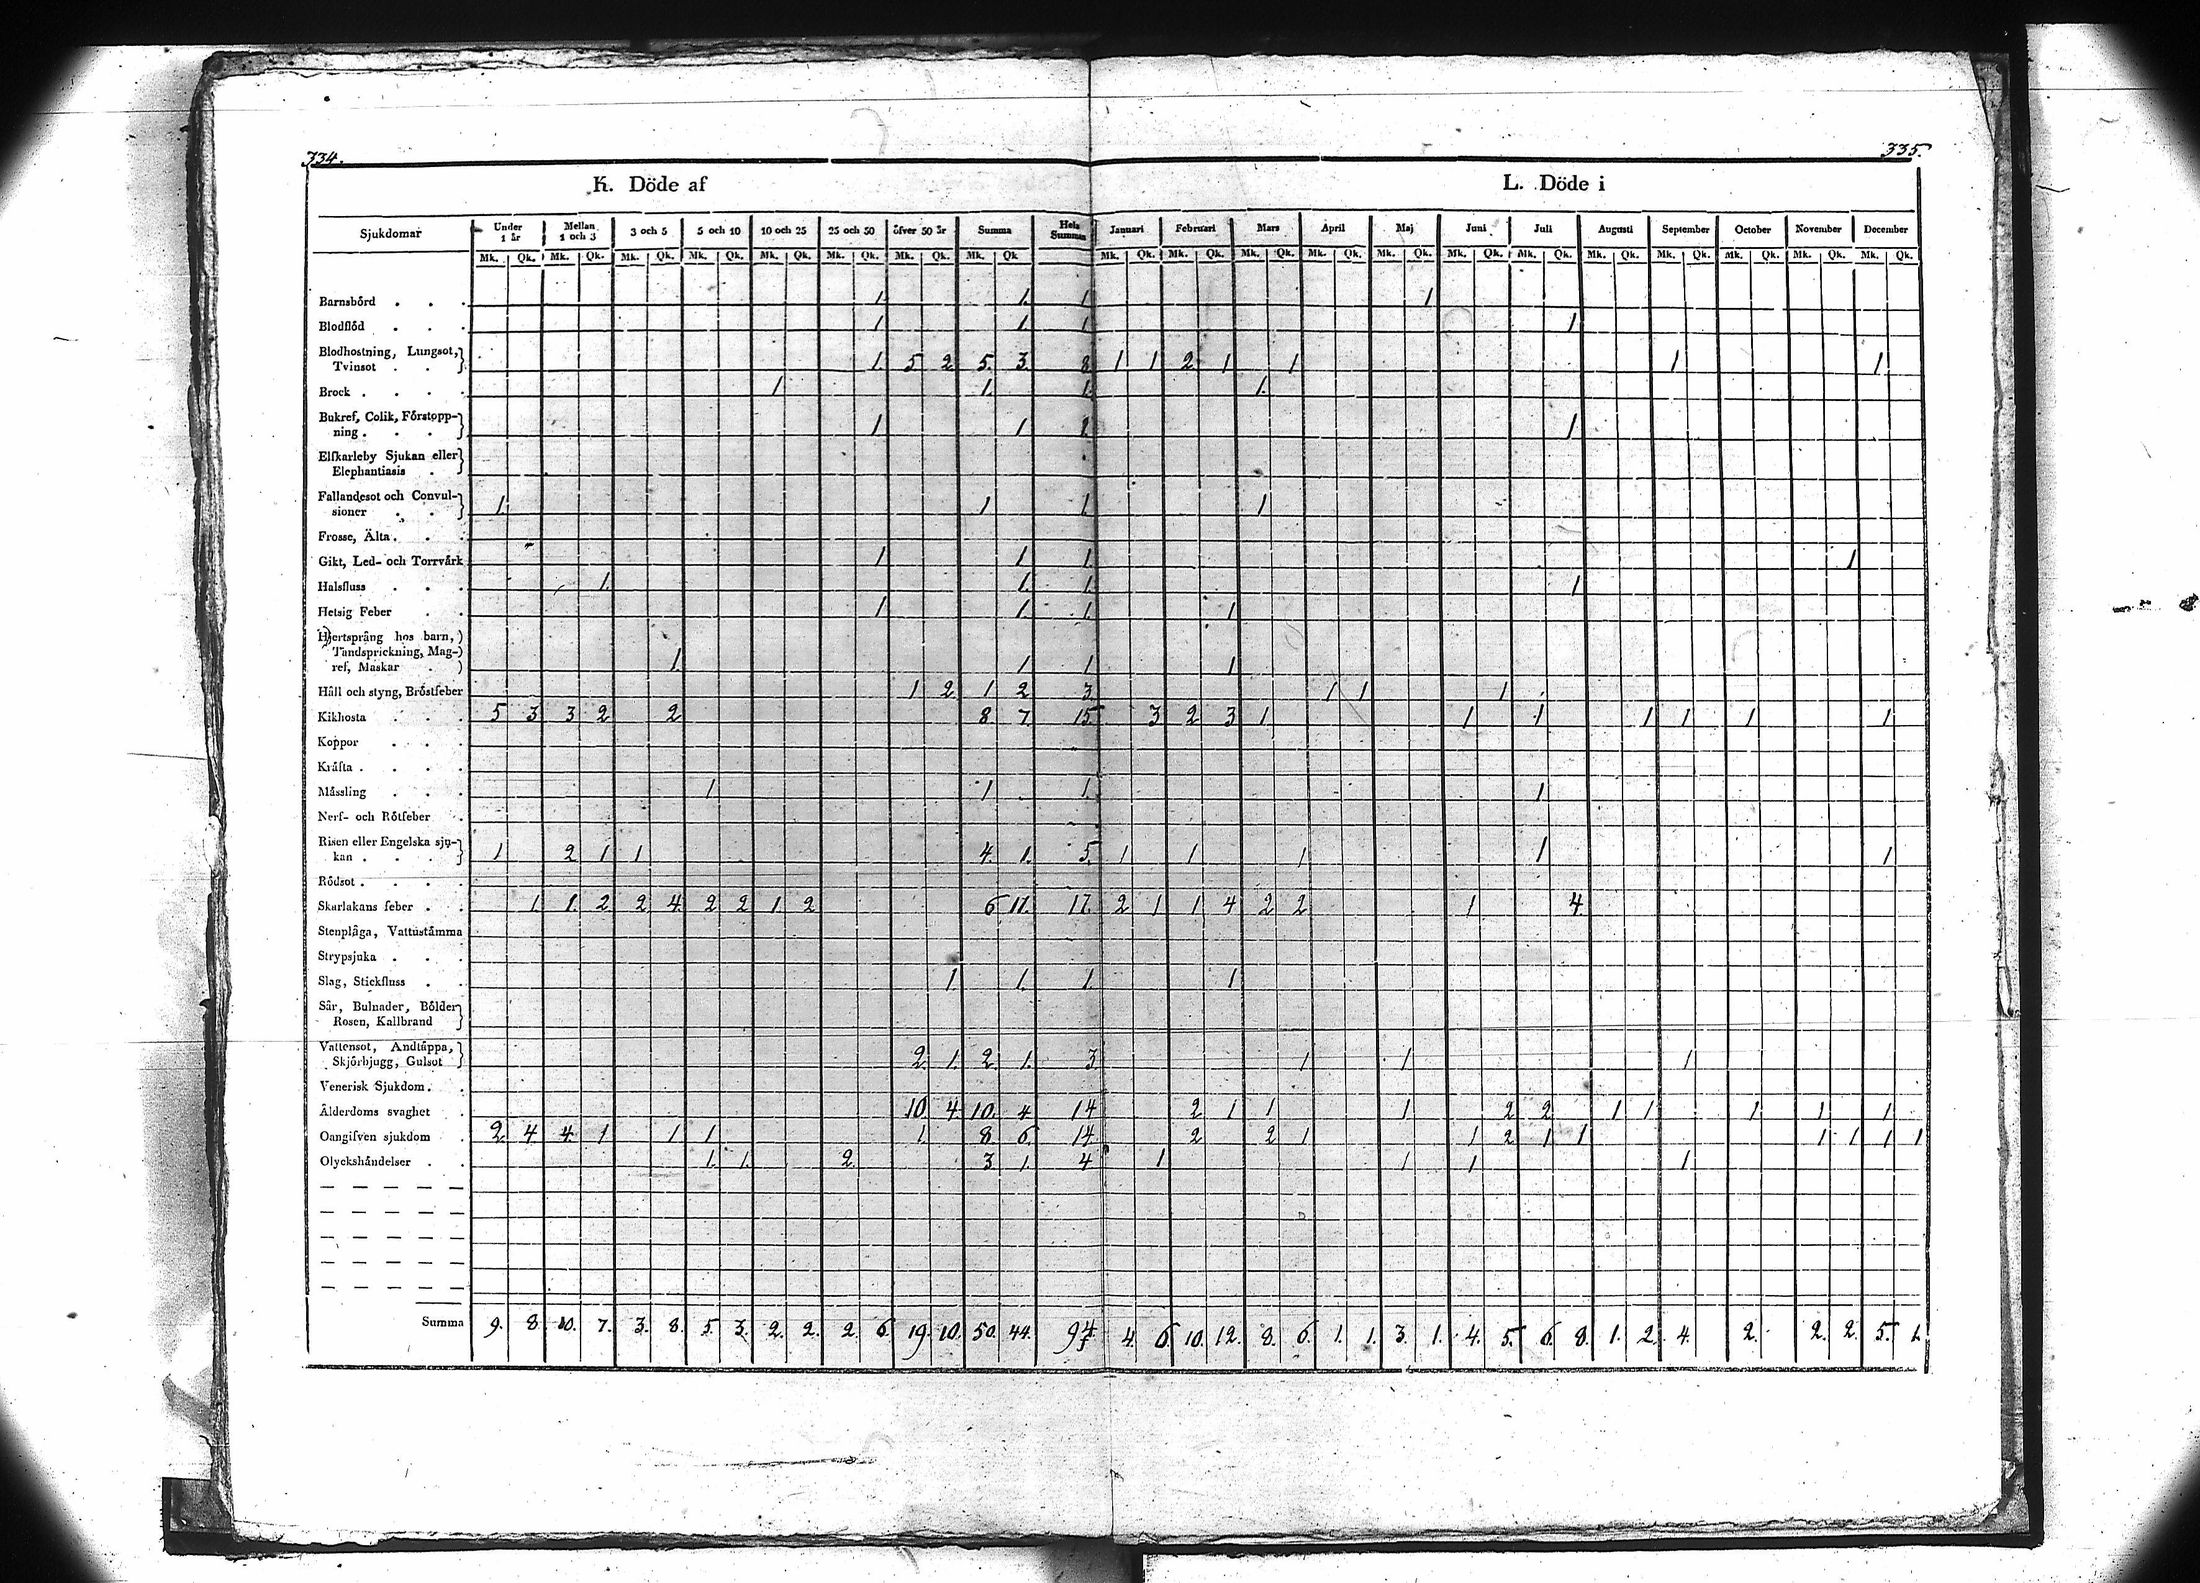 334.
335.
K. Döde af
L. Döde i
Sjukdomar | Under 1 år | Mellan 1 och 3 | 3 och 5 | 5 och 10 | 10 och 25 | 25 och 50 | öfver 50 år | Summa | Hela Summan | Januari | Februari | Mars | April | Maj | Juni | Juli | Augusti | September | October | November | December
Mk. Qk. Mk. Qk. Mk. Qk. Mk. Qk. Mk. Qk. Mk. Qk. Mk. Qk. Mk. Qk Mk. Qk. Mk. Qk. Mk. Qk. Mk. Qk. Mk. Qk. Mk. Qk. Mk. Qk. Mk. Qk. Mk. Qk. Mk. Qk. Mk. Qk. Mk. Qk.
Barnsbörd . . . 1. 1. 1 1
Blodflöd . . . 1 1 1 1
Blodhostning, Lungsot,
Tvinsot . . 1. 5 2 5. 3. 8 1 1 2 1 1 1 1
Brock . . . . 1 1. 1. 1.
Bukref, Colik, Förstopp-
ning . . . 1 1 1 1
Elfkarleby Sjukan eller
Elephantiasis .
Fallandesot och Convul-
sioner . . 1. 1 1. 1
Frosse, Älta . . .
Gikt, Led- och Torrvärk 1 1 1 1
Halsfluss . . . 1. 1. 1. 1
Hetsig Feber . . 1 1. 1. 1
Hjertsprång hos barn,
Tandsprickning, Mag-
ref, Maskar . 1. 1 1 1
Håll och styng, Bröstfeber 1 2 1 2 3 1 1 1
Kikhosta . . . 5 3 3 2 2 8 7. 15. 3 2 3 1 1 1 1 1 1 1
Koppor . . .
Kräfta . . . .
Mässling . . . 1 1 1. 1
Nerf- och Rötfeber .
Risen eller Engelska sju-
kan . . . . 1 2 1 1 4. 1. 5. 1 1 1 1 1
Rödsot . . . .
Skarlakans feber . . 1. 1. 2 2 4. 2 2 1. 2 6 11. 17. 2 1 1 4 2 2 1 4.
Stenplåga, Vattustämma
Strypsjuka . . .
Slag, Stickfluss . . 1. 1. 1. 1
Sår, Bulnader, Bölder
Rosen, Kallbrand
Vattensot, Andtäppa,
Skjörbjugg, Gulsot 2. 1. 2. 1. 3 1 1 1
Venerisk Sjukdom . .
Ålderdoms svaghet . 10. 4 10. 4 14 2 1 1 1 2 2 1 1 1 1 1
Oangifven sjukdom . 2 4 4 1 1 1 1. 8. 6. 14. 2 2 1 1 2 1 1 1 1 1 1
Olyckshändelser . . 1. 1. 2. 3 1. 4 1 1 1 1
Summa 9. 8. 10. 7. 3. 8. 5. 3. 2. 2. 2. 6. 19. 10. 50. 44. 94 4. 6. 10. 12. 8. 6. 1. 1. 3. 1. 4. 5. 6. 8. 1. 2. 4. 2. 2. 2. 5. 1.